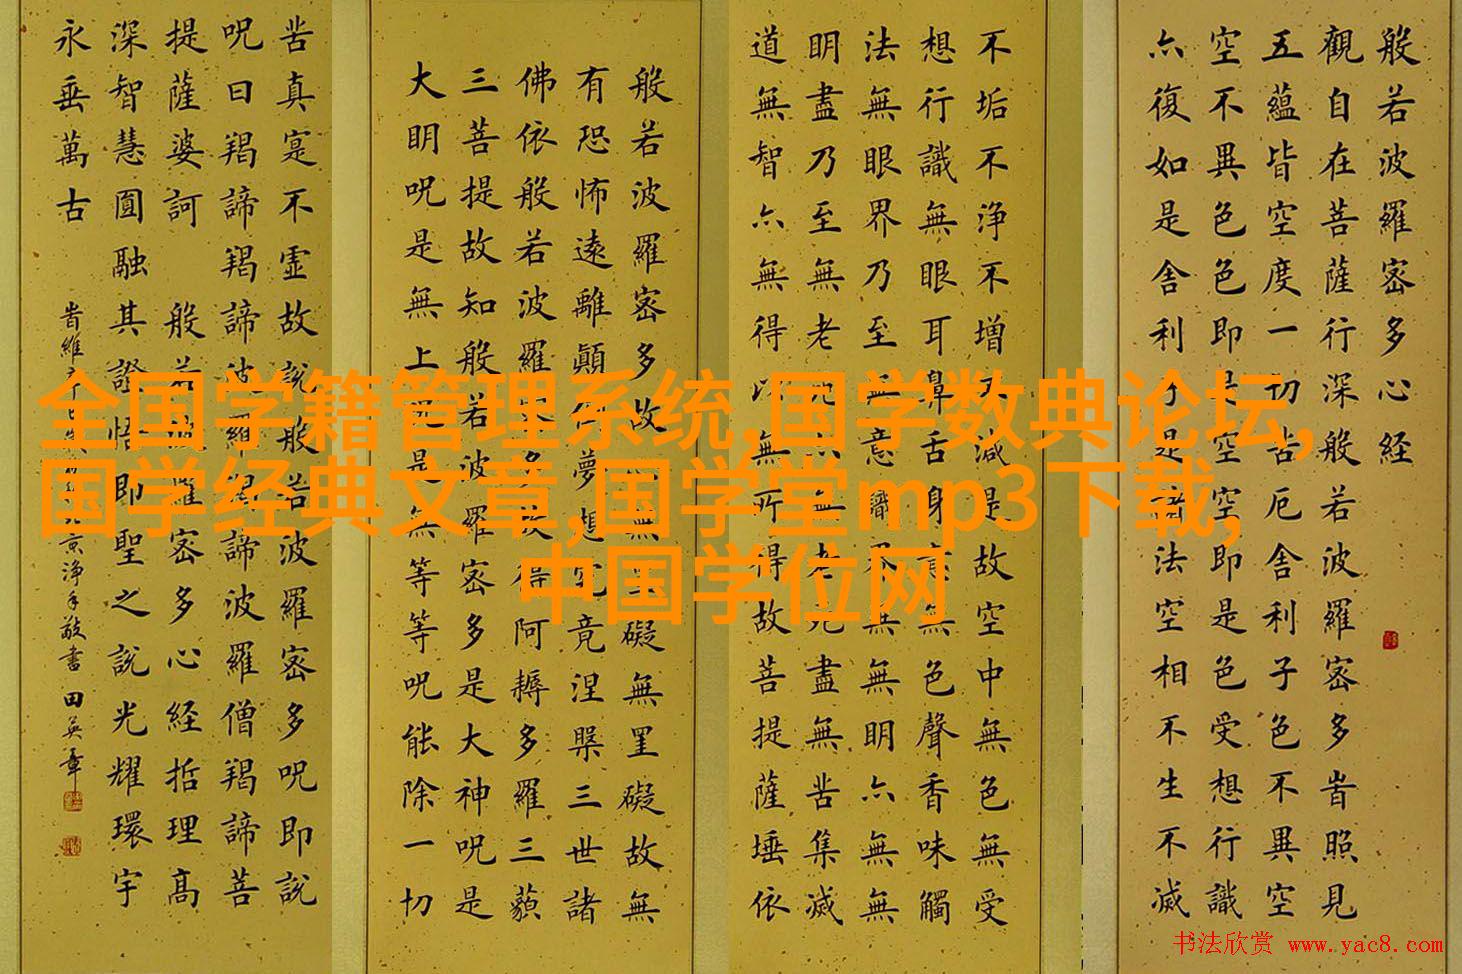 般若波羅密多心経
觀自在菩薩行深般若波羅密多旹照見
五蘊皆空度一切苦厄舍利子色不異空
空不異色色即是空空即是色受想行識
亦復如是舍利子是諸法空相不生不滅
不垢不浄不增不減是故空中無色無受
想行識無眼耳鼻舌身意無色聲香味觸
法無眼界乃至無意識界無無明亦無無
明盡乃至無老死亦無老死盡無苦集滅
道無智亦無得以無所得故菩提薩埵依
般若波羅密多故心無罣礙無罣礙故無
有恐怖遠離顛倒夢想究竟涅槃三世諸
佛依般若波羅密多故得阿耨多羅三藐
三菩提故知般若波羅密多是大神呪是
大明呪是無上呪是無等等呪能除一切
苦真寔不虛故説般若波羅密多呪即説
呪曰羯諦羯諦波羅羯諦波羅僧羯諦菩
提薩婆訶 般若波羅密多心経括理高
深智慧圓融其證悟即聖之説光耀環宇
永垂萬古
旹維京浄手敬書田英章
全国学籍管理系统,国学数典论坛,
国学经典文章,国学堂mp3下载,
中国学位网
书法欣赏 www.yac8.com